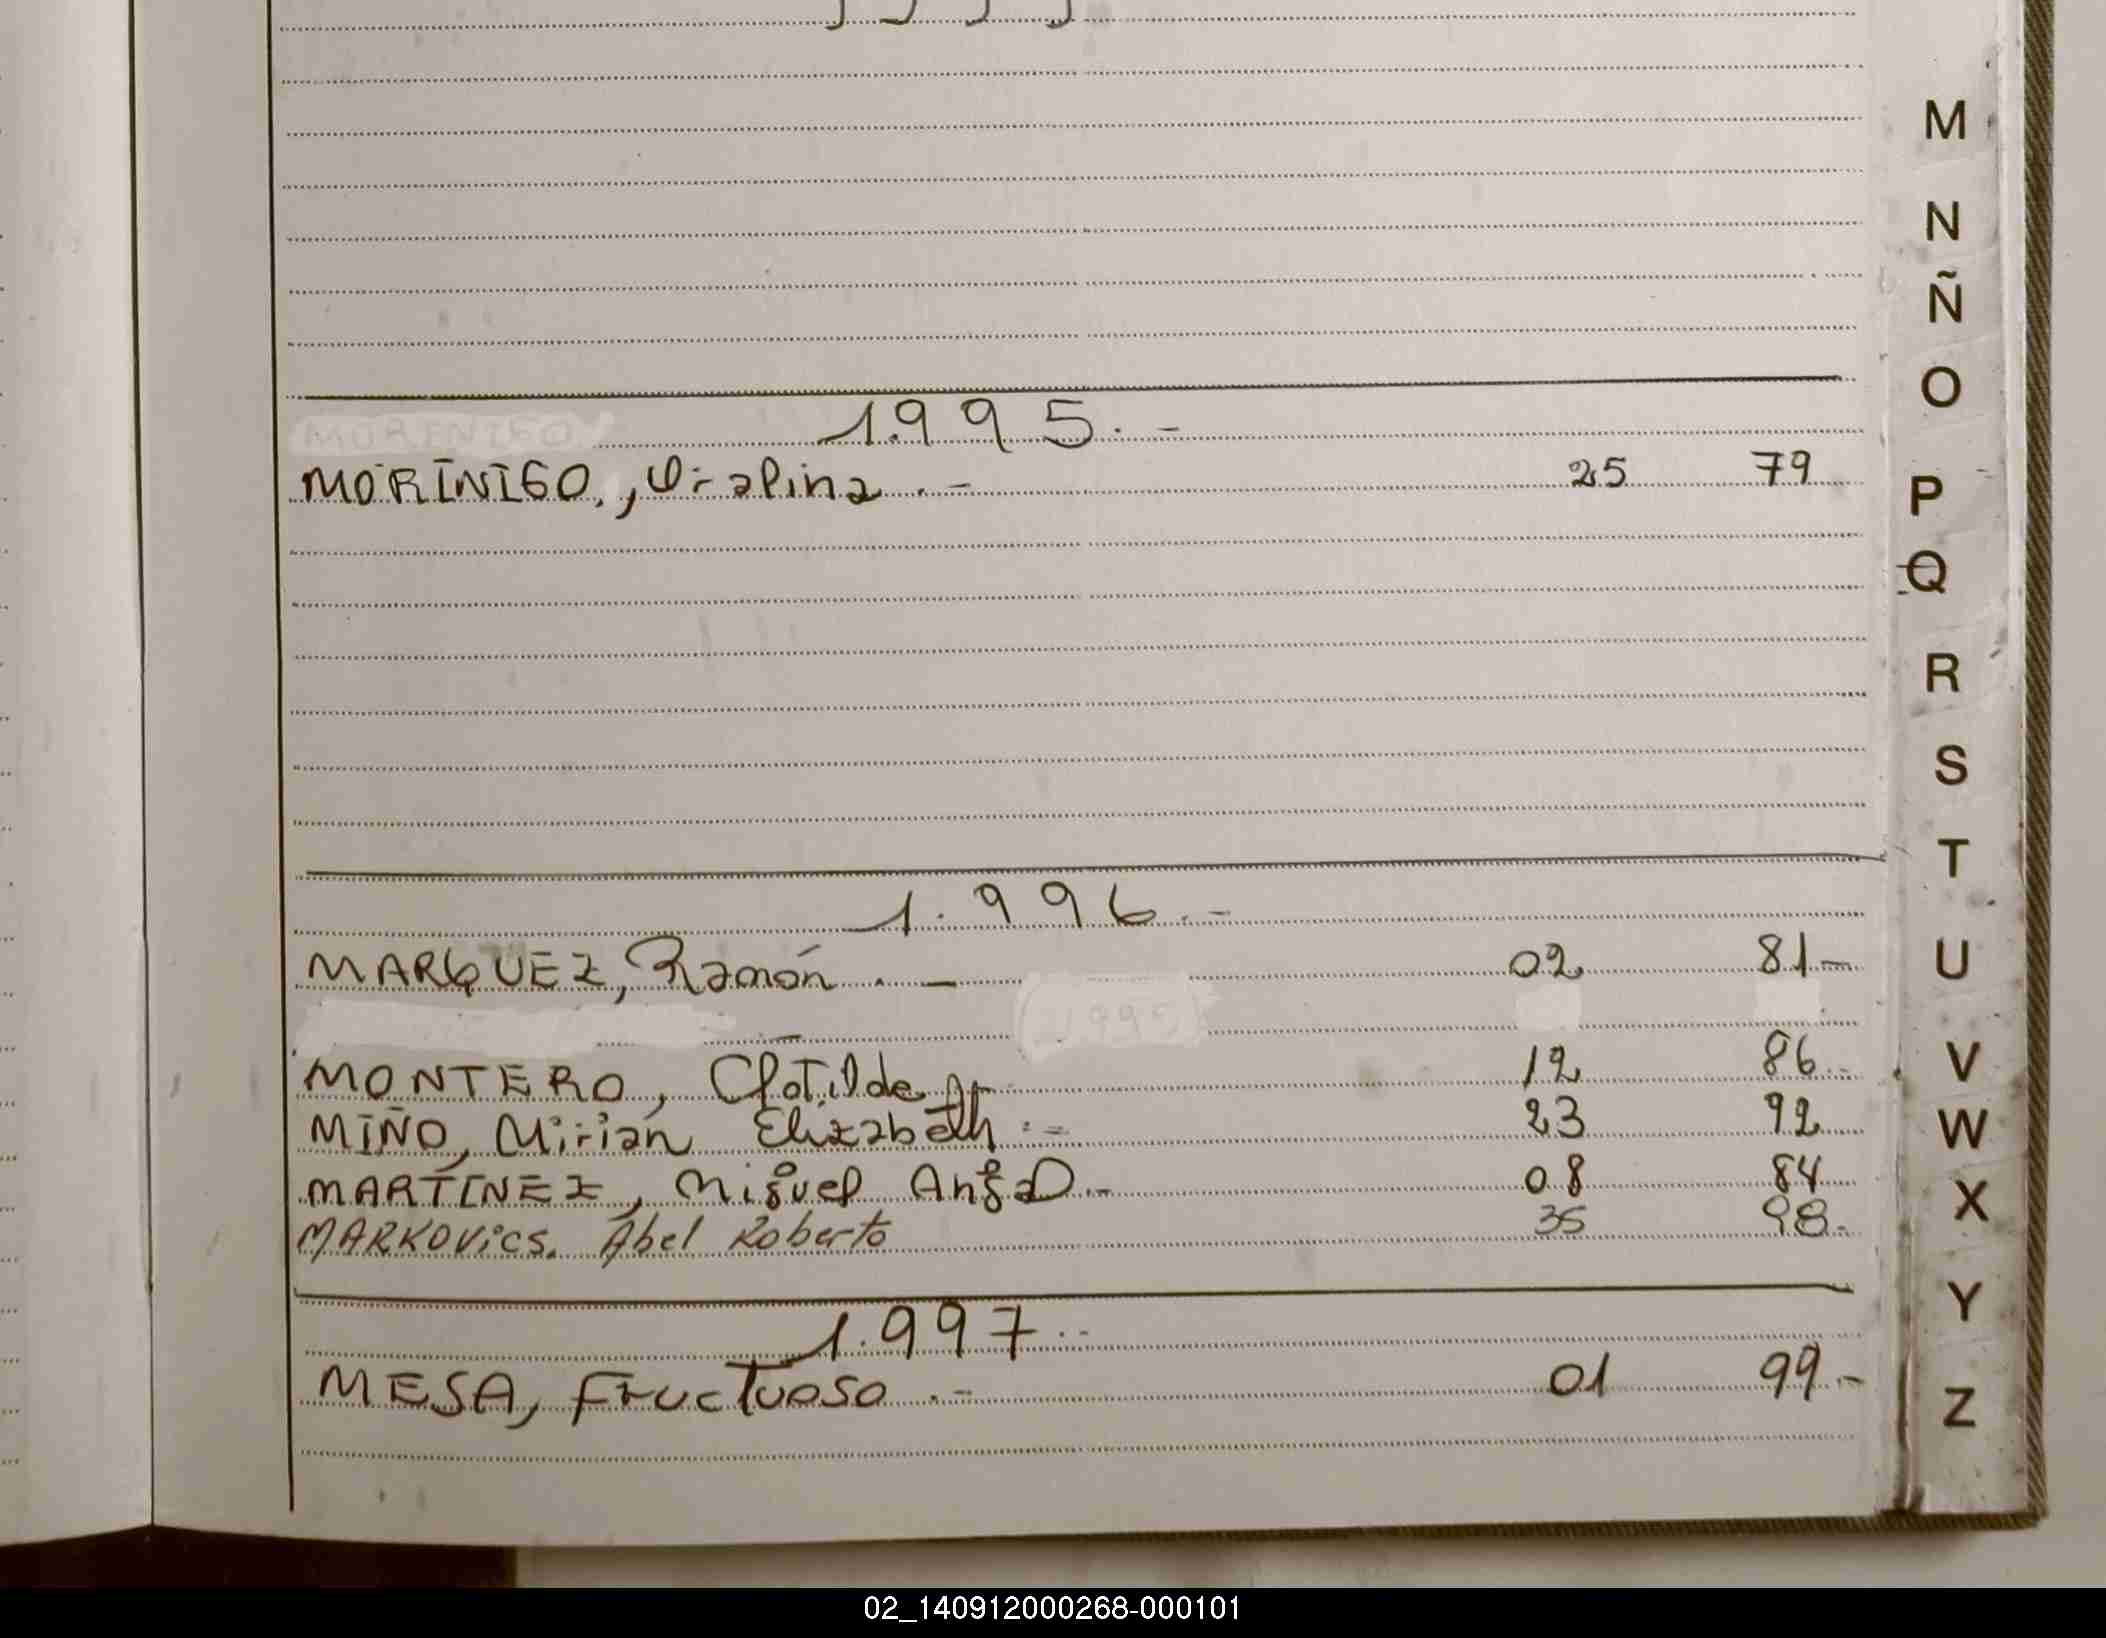 1.995.-
MORINIGO., Uralina.-  25  79
1.996.-
MARQUEZ, Ramón.-  02  81-
MONTERO, Clotilde.-  12  86.-
MIÑO, Mirian Elizabeth.-  23  92
MARTINEZ, Miguel Angel.-  08  84
MARKOVics. Abel Roberto  35  98.-
1.997.-
MESA, Fructuoso.-  01  99.-
M
N
Ñ
O
P
Q
R
S
T
U
V
W
X
Y
Z
02_140912000268-000101